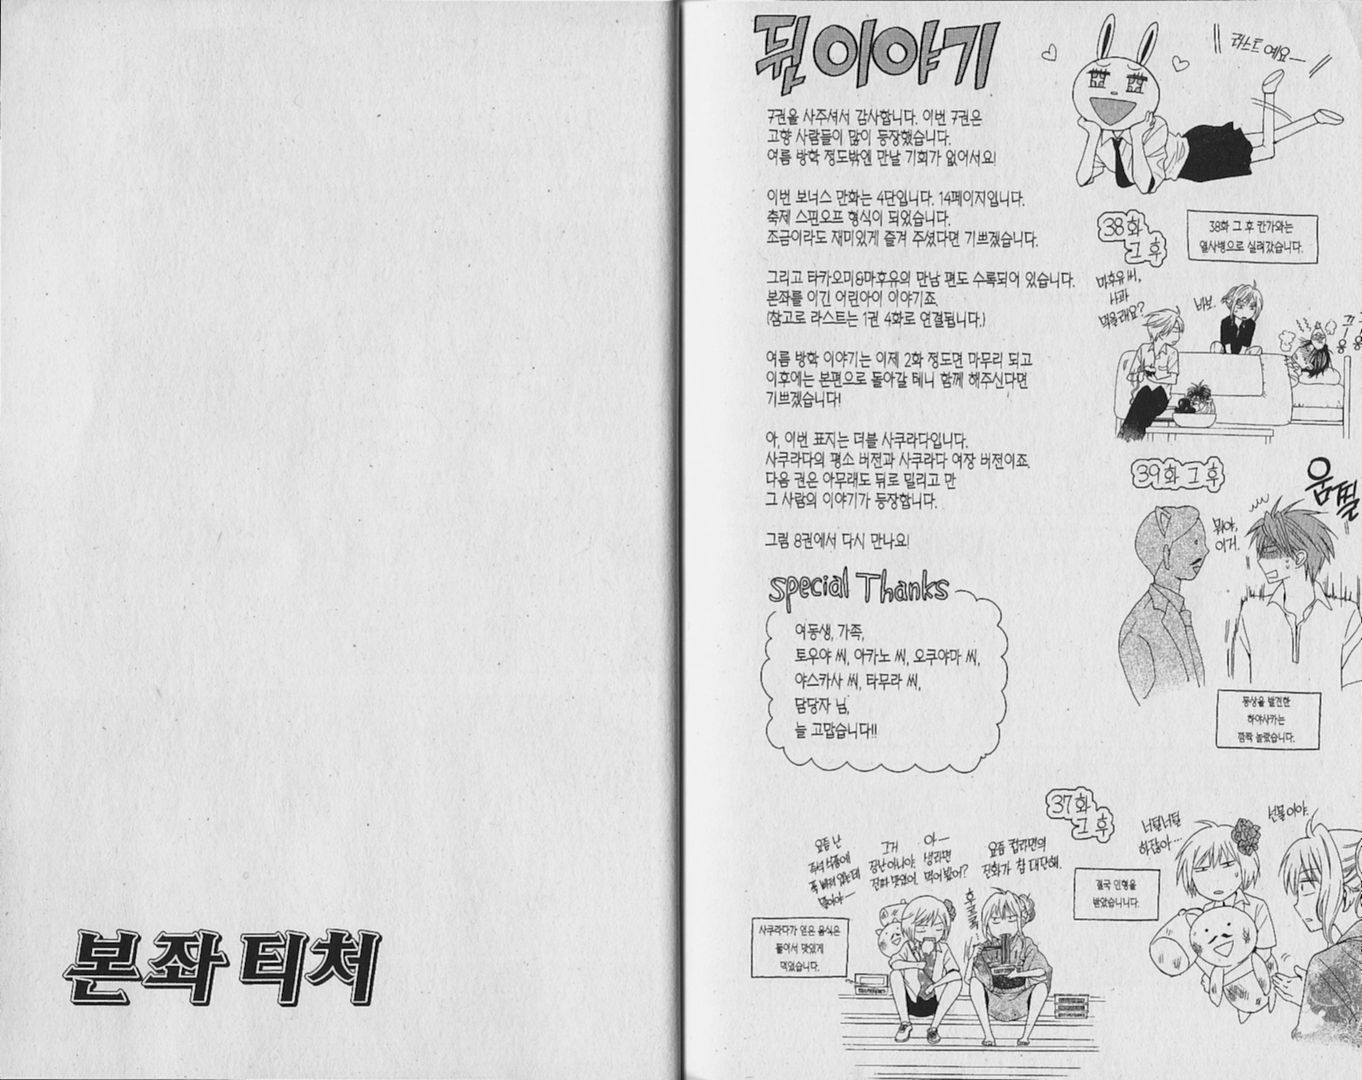 본좌 티처
뒷 이야기
라스트예요—
7권을 사주셔서 감사합니다. 이번 7권은
고향 사람들이 많이 등장했습니다.
여름 방학 정도밖엔 만날 기회가 없어서요!
이번 보너스 만화는 4단입니다. 14페이지입니다.
축제 스핀오프 형식이 되었습니다.
조금이라도 재미있게 즐겨 주셨다면 기쁘겠습니다.
그리고 타카오미&마후유의 만남 편도 수록되어 있습니다.
본좌를 이긴 어린아이 이야기죠.
(참고로 라스트는 1권 4화로 연결됩니다.)
여름 방학 이야기는 이제 2화 정도면 마무리 되고
이후에는 본편으로 돌아갈 테니 함께 해주신다면
기쁘겠습니다!
아, 이번 표지는 더블 사쿠라다입니다.
사쿠라다의 평소 버전과 사쿠라다 여장 버전이죠.
다음 권은 아무래도 뒤로 밀리고 만
그 사람의 이야기가 등장합니다.
그럼 8권에서 다시 만나요!
special Thanks
여동생, 가족,
토우야 씨, 아카노 씨, 오쿠야마 씨,
야스카사 씨, 타무라 씨,
담당자 님,
늘 고맙습니다!!
38화
그 후
38화 그 후 칸가와는
열사병으로 실려갔습니다.
마후유 씨,
사과
먹을래요?
바보.
39화 그 후
움찔
뭐야,
이거.
동상을 발견한
하야사카는
깜짝 놀랐습니다.
37화
그 후
요즘 난
즉석 식품에
푹 빠져 있는데
말이야—
그거
장난 아니야.
진짜 맛있어.
아—
생라면
먹어 봤어?
요즘 컵라면의
진화가 참 대단해.
후루룩
사쿠라다가 얻은 음식은
둘이서 맛있게
먹었습니다.
결국 인형을
받았습니다.
너덜너덜
하잖아…
선물이야.